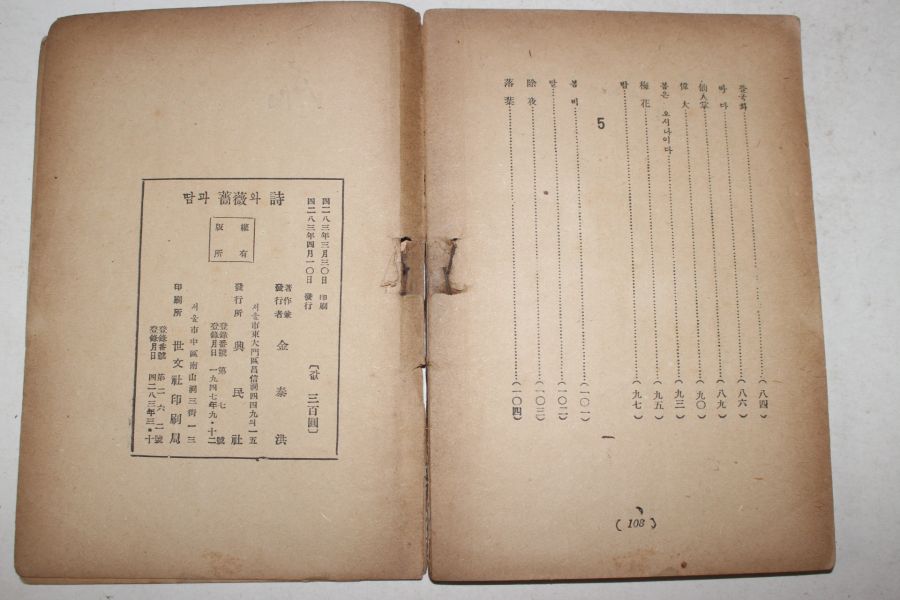 들국화 (八四)
바다 (八六)
仙人掌 (八九)
偉大 (九〇)
봄은 오시나이다 (九三)
梅花 (九五)
밤 (九七)
5
봄비 (一〇一)
(一〇二)
除夜 (一〇三)
落葉 (一〇四)
( 108 )
땀과 薔薇와 詩
版權所有
四二八三年三月三〇日 印刷
四二八三年四月一〇日 發行
[값 三百圓]
著作兼發行者 金泰洪
서울市東大門區昌信洞四四九의一五
發行所 興民社
登錄番號 第七號
登錄月日 一九四七年九·十二
서울市中區南山洞三街一三
印刷所 世文社印刷局
登錄番號 第二六二號
登錄月日 四二八三年三·十